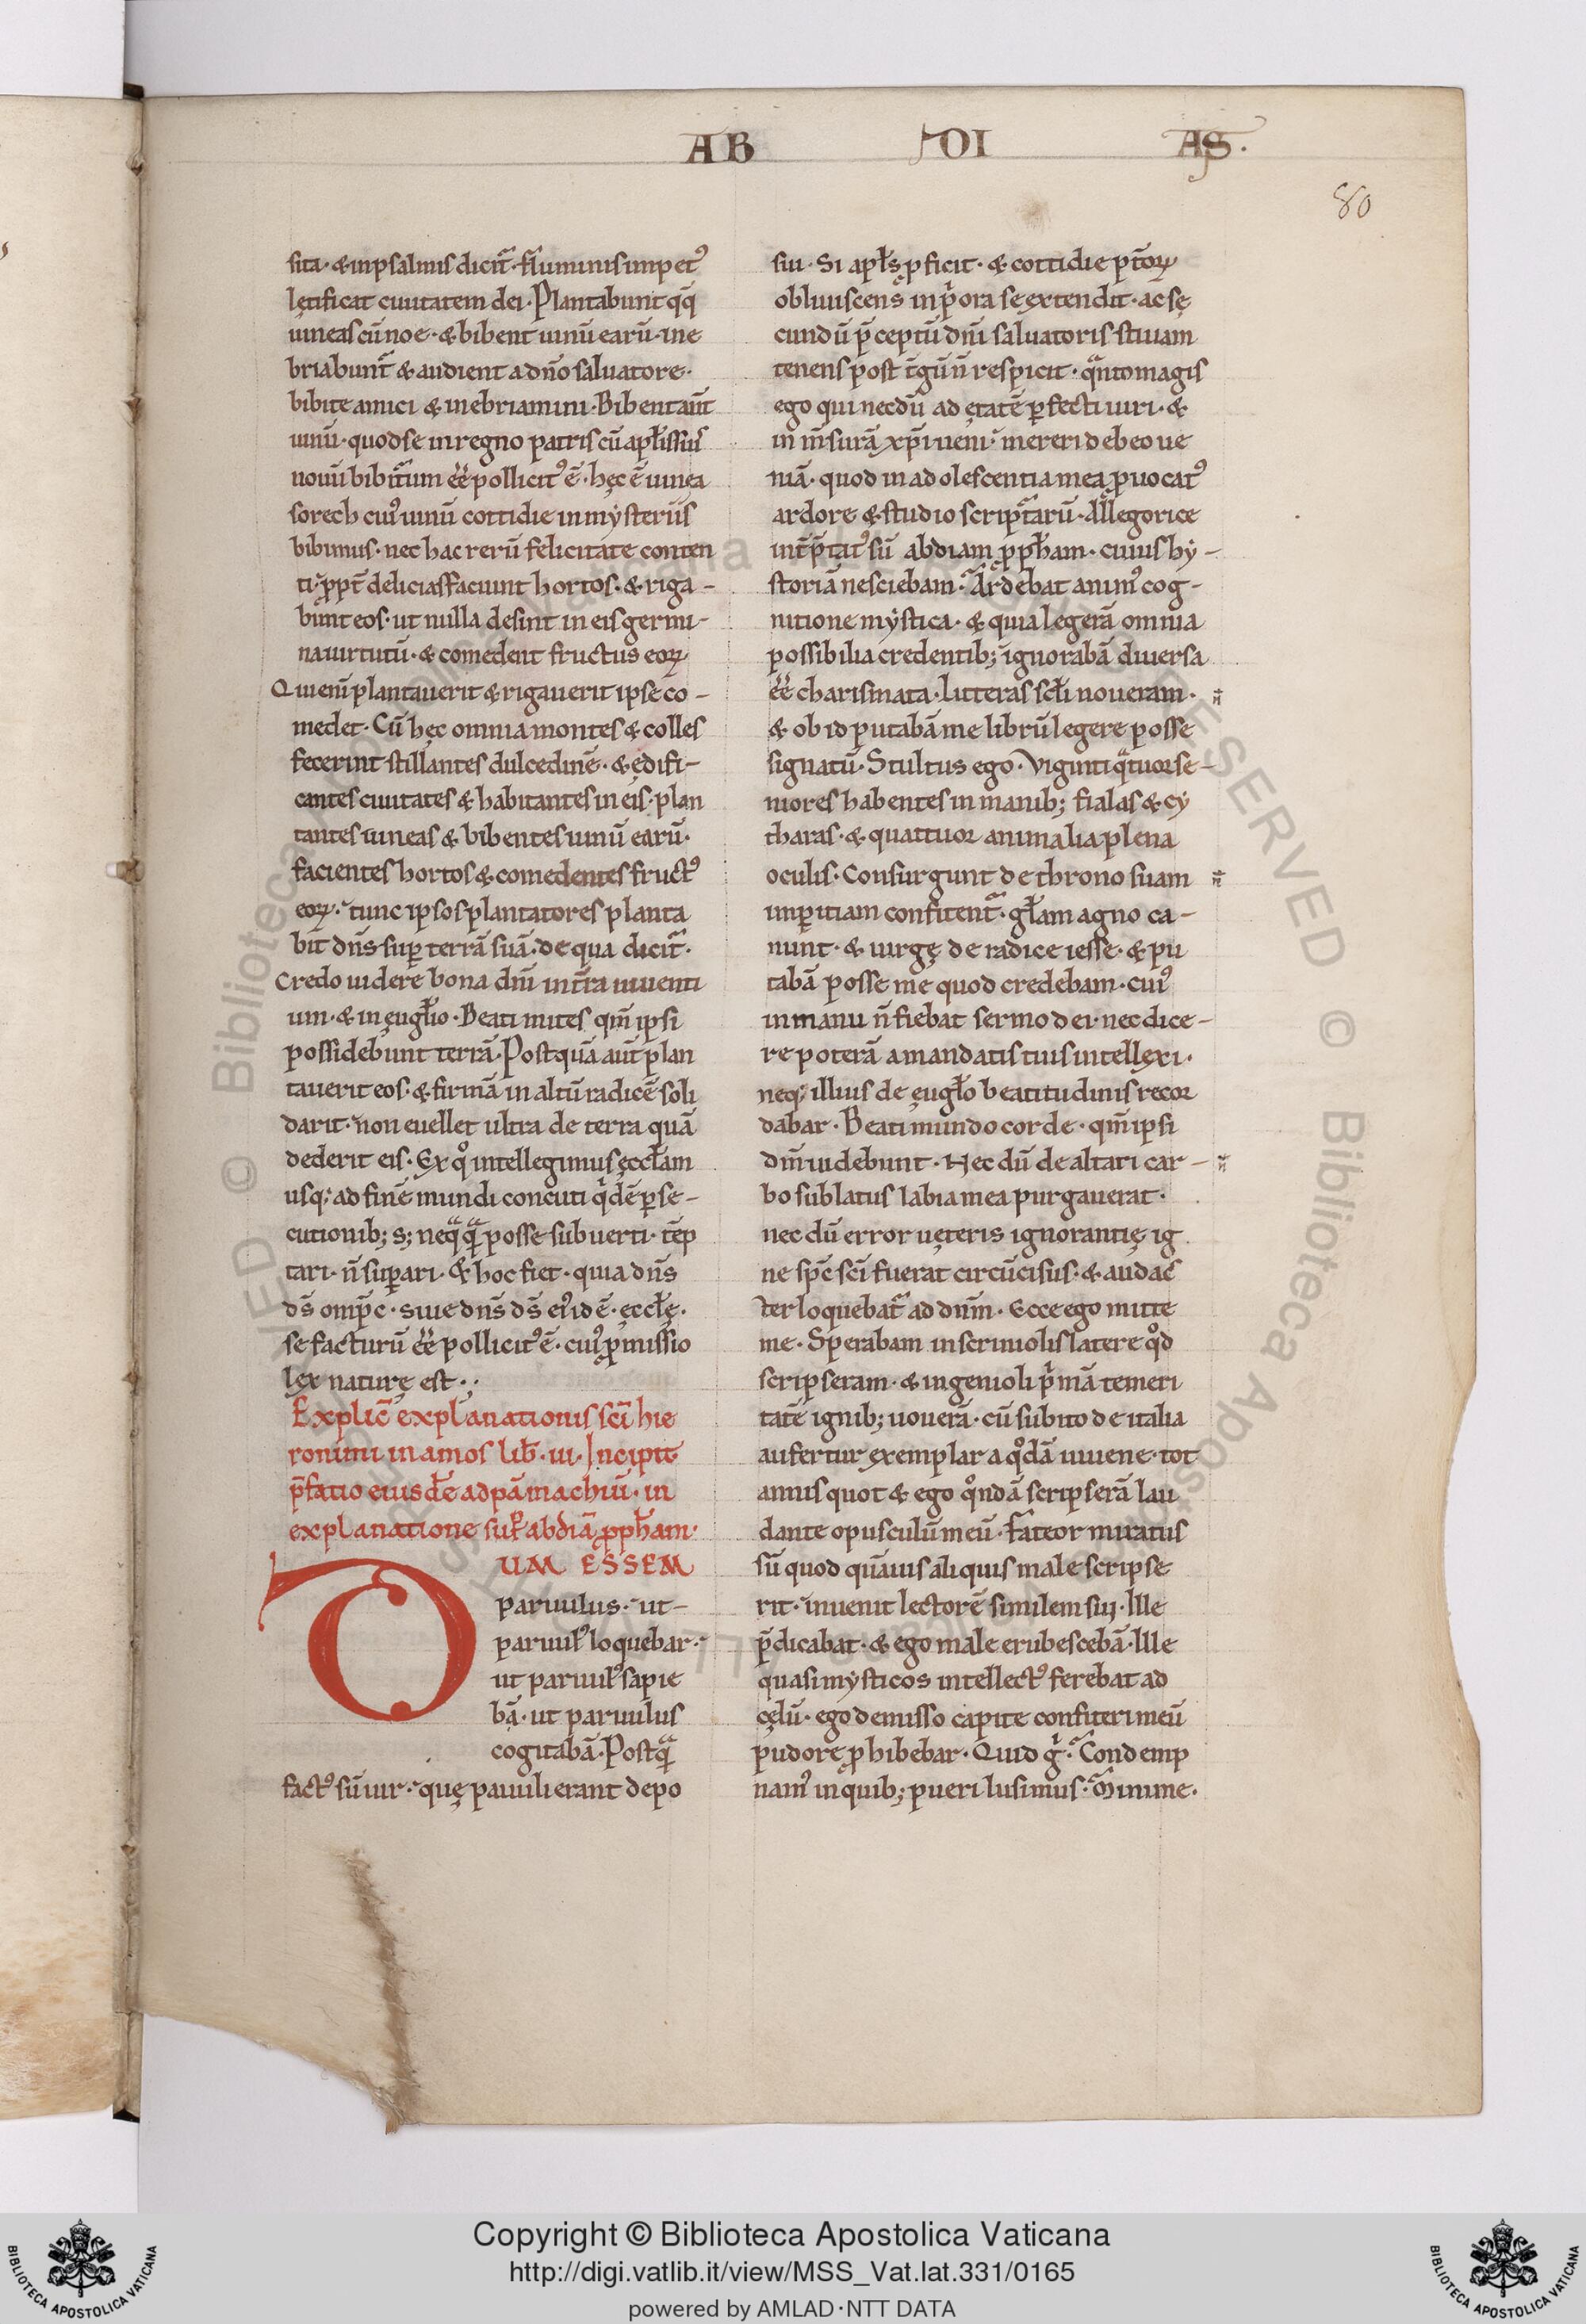 AB DI AS.
80
sita · & in psalmis dicit᷑ · fluminis impet᷒
lętificat ciuitatem dei · Plantabunt qq̄
uineas cū noe · & bibent uinū earū · ine
briabunt᷑ & audient a dn̄o saluatore ·
bibite amici & inebriamini · Bibent aūt
uinū · quod se in regno patris cū apl̄is suis
nouū bibit᷑um ēē pollicit᷒ ē · hęc ē uinea
sorech cui᷒ uinū cottidie in mẏsteriis
bibimus · nec hac rerū felicitate conten
ti · ꝓpt̄ delicias faciunt hortos · & riga-
bunt eos · ut nulla desint in eis germi-
na uirtutū · & comedent fructus eoꝝ
Qui enī plantauerit & rigauerit ipse co-
medet · Cū hęc omnia montes & colles
fecerint stillantes dulcedinē · & ędifi-
cantes ciuitates & habitantes in eis · plan
tantes uineas & bibentes uinū earū ·
facientes hortos & comedentes fruct᷒
eoꝝ · tunc ipsos plantatores planta
bit dn̄s suꝑ terrā suā · de qua dicit᷑ ·
Credo uidere bona dn̄i in t̄ra uiuenti
um · & in ęugl̄io · Beati mites qm̄ ipsi
possidebunt terrā · Postquā aūt plan
tauerit eos · & firmā in altū radicē soli
darit · non euellet ultra de terra quā
dederit eis · Ex qͦ intellegimus ęccl̄am
usq; ad finē mundi concuti qͥdē ꝑse-
cutionib; s; neqͣqͣ posse subuerti · tēp
tari · n̄ suꝑari · & hoc fiet · quia dn̄s
ds̄ omp̄c · siue dn̄s ds̄ ei᷒ id ē · ęccl̄ę ·
se facturū ēē pollicit᷒ ē · cui᷒ ꝓmissio
lex naturę est ·;
Explic̄ explanationis sc̄i hie
ronimi in amos lib̄ · iii · Incipit
p̄fatio eiusdē ad pāmachiū · in
explanatione suꝑ abdiā ꝓph̄am ·
DUM ESSEM
paruulus · ut-
paruul᷒ loquebar ·
ut paruul᷒ sapie
bā · ut paruulus
cogitabā · Postqͣ
fact᷒ sū uir · quę pauuli erant depo
sui · Si apl̄s ꝓficit · & cottidie p̄toꝝ
obliuiscens in pͥora se extendit · ac sę
cundū p̄ceptū dn̄i saluatoris stiuam
tenens post t̄gū n̄ respicit · qͣnto magis
ego qui necdū ad ętatē ꝑfecti uiri · &
in m̄surā xp̄i ueni · mereri debeo ue
niā · quod in adolescentia mea ꝓuocat᷒
ardore & studio script᷑arū · Allegorice
int̄p̄tat᷒ sū abdiam ꝓph̄am · cuius hẏ-
storiā nesciebam · Ardebat anim᷒ cog-
nitione mẏstica · & quia legerā omnia
possibilia credentib; ignorabā diuersa
ēē charismata · Litteras scl̄i noueram ·
& ob id putabā me librū legere posse
signatū · Stultus ego · Viginti qͣtuor se-
niores habentes in manib; fialas & cẏ
tharas · & quattuor animalia plena
oculis · Consurgunt de throno suam
imꝑitiam confitent᷑ · gl̄am agno ca-
nunt · & uirgę de radice iesse · & pu
tabā posse me quod credebam · cui᷒
in manu n̄ fiebat sermo dei · nec dice-
re poterā a mandatis tuis intellexi ·
neq; illius de ęugl̄o beatitudinis recor
dabar · Beati mundo corde · qm̄ ipsi
dm̄ uidebunt · Nec dū de altari car-
bo sublatus labia mea purgauerat ·
nec dū error ueteris ignorantię ig
ne sp̄c sc̄i fuerat circūcisus · & audac̄
ter loquebat᷑ ad dnm̄ · Ecce ego mitte
me · Sperabam in scriniolis latere qͦd
scripseram · & ingenioli pͥmā temeri
tatē ignib; uouerā · cū subito de italia
aufertur exemplar a qͦdā iuuene · tot
annis quot & ego qͦndā scripserā lau
dante opusculū meū · Fateor miratus
sū quod quāuis aliquis male scripse
rit · inuenit lectorē similem sui · Ille
p̄dicabat · & ego male erubescebā · Ille
quasi mẏsticos intellect᷒ ferebat ad
cęlū · ego demisso capite confiteri meū
pudorē ꝓhibebar · Quid gͥ · Condemp
nam᷒ in quib; pueri lusimus · Minime ·
© Biblioteca Apostolica Vaticana
Copyright © Biblioteca Apostolica Vaticana
http://digi.vatlib.it/view/MSS_Vat.lat.331/0165
powered by AMLAD·NTT DATA
BIBLIOTECA APOSTOLICA VATICANA
BIBLIOTECA APOSTOLICA VATICANA